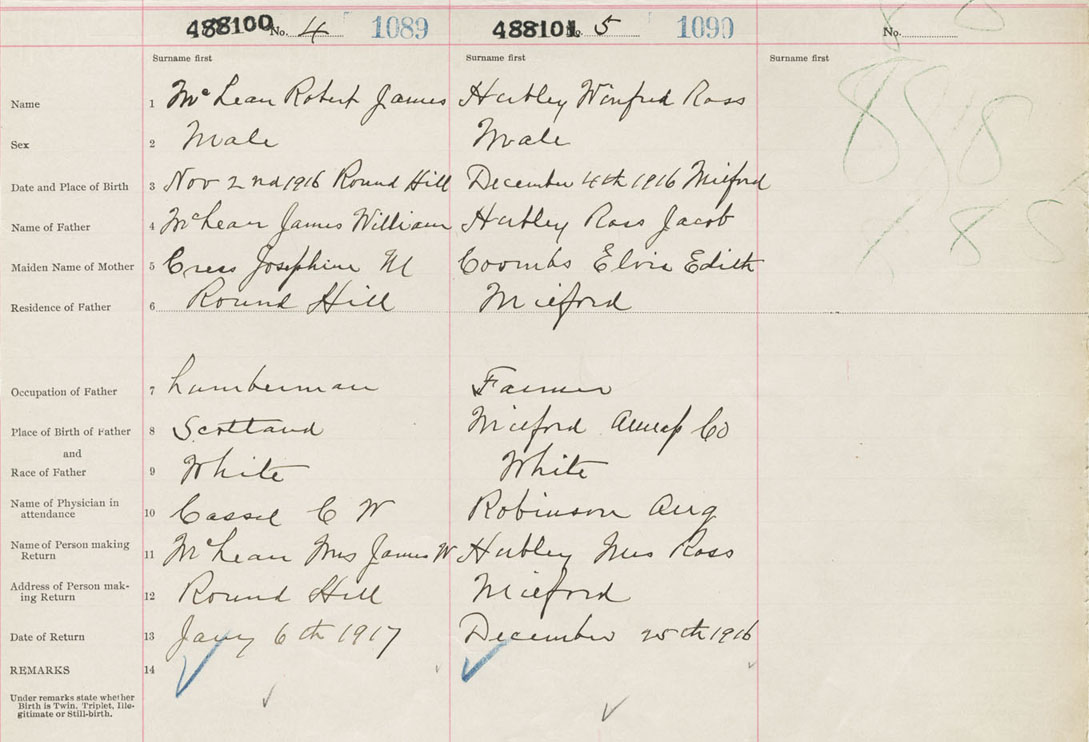 488100 No. 4 1089 488101 No. 5 1090 No.
Surname first Surname first Surname first
Name 1 McLean Robert James Hubley Winfred Ross
Sex 2 Male Male
Date and Place of Birth 3 Nov 2nd 1916 Round Hill December 4th 1916 Milford
Name of Father 4 McLean James William Hubley Ross Jacob
Maiden Name of Mother 5 Cress Josephine M Coombs Elvie Edith
Residence of Father 6 Round Hill Milford
Occupation of Father 7 Lumberman Farmer
Place of Birth of Father 8 Scotland Milford Annap Co
and
Race of Father 9 White White
Name of Physician in
attendance 10 C W Robinson Aug
Name of Person making
Return 11 McLean Mrs James W Hubley Mrs Ross
Address of Person mak-
ing Return 12 Round Hill Milford
Date of Return 13 Jany 6th 1917 December 25th 1916
REMARKS 14
Under remarks state whether
Birth is Twin, Triplet, Ille-
gitimate or Still-birth.